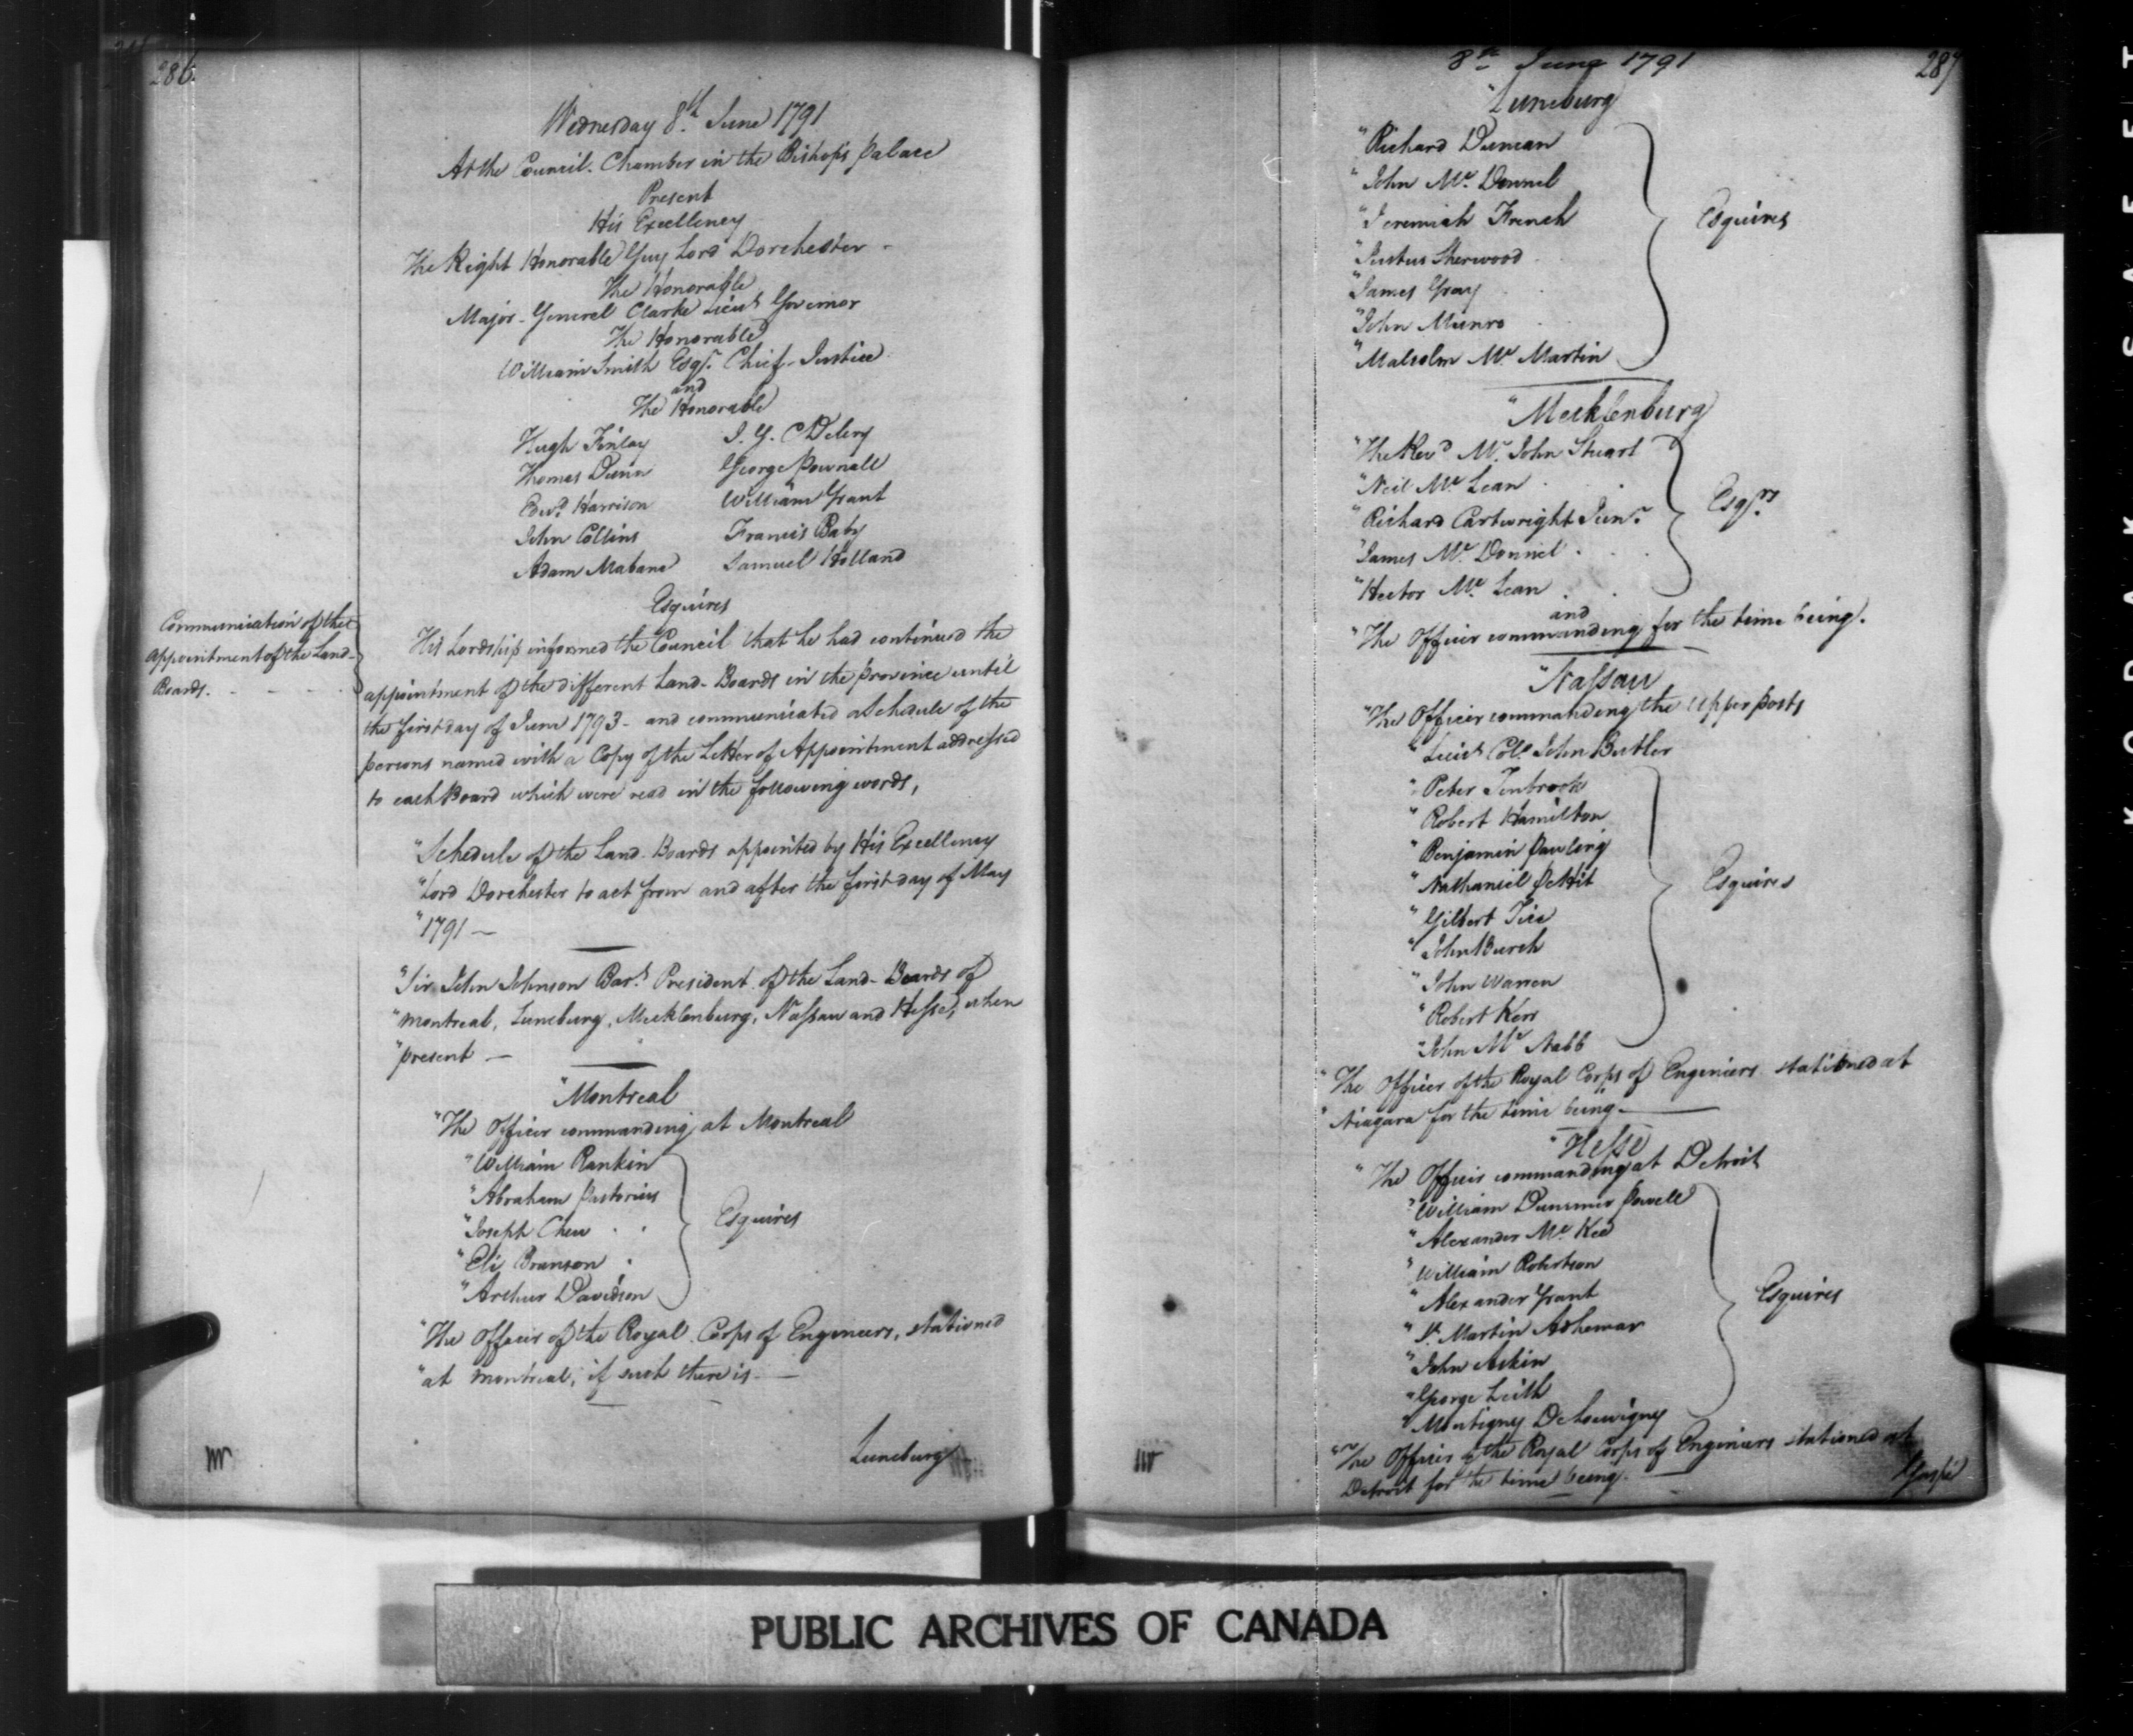 286
Wednesday 8th. June 1791
At the Council Chamber in the Bishop's Palace
Present
His Excellency
The Right Honorable Guy Lord Dorchester -
The Honorable
Major-General Clarke Lieut Governor
The Honorable
William Smith Esqr. Chief-Justice
and
The Honorable
Hugh Finlay J. G. C Delery
Thomas Dunn George Pownall
Edwd. Harrison William Grant
John Collins Francis Baby
Adam Mabane Samuel Holland
Esquires
Communication of the
appointment of the Land-
Boards.
His Lordship informed the Council that he had continued the
appointment of the different Land-Boards in the province until
the first day of June 1793 - and communicated a Schedule of the
persons named with a Copy of the Letter of Appointment addressed
to each Board which were read in the following words,
"Schedule of the Land-Boards appointed by His Excellency
"Lord Dorchester to act from and after the first day of May
"1791 —
"Sir John Johnson Bart. President of the Land-Boards of
"Montreal, Luneburg, Mecklenburg, Nassau and Hesse, when
"present —
"Montreal
"The Officer commanding at Montreal
"William Rankin
"Abraham Pastorius
"Joseph Chew
"Eli Branson
"Arthur Davidson
Esquires
"The Officer of the Royal Corps of Engineers, stationed
"at Montreal, if such there is —
Luneburg
8th June 1791
287
"Luneburg
"Richard Duncan
"John Mc. Donnel
"Jeremiah French
"Justus Sherwood
"James Gray
"John Munro
"Malcolm Mc. Martin
Esquires
"Mecklenburg
"The Revd Mr. John Stuart
"Neil Mc. Lean
"Richard Cartwright Junr.
"James Mc. Donnel
"Hector Mc. Lean
Esqrs.
and
"The Officer commanding for the time being.
"Nassau
"The Officer commanding the upper posts
"Lieut Colo. John Butler
"Peter Tenbrook
"Robert Hamilton
"Benjamin Pauling
"Nathaniel Pettit
"Gilbert Tice
"John Burch
"John Warren
"Robert Kerr
"John Mc Nabb
Esquires
"The Officer of the Royal Corps of Engeniers stationed at
"Niagara for the time being —
"Hesse
"The Officer commanding at Detroit
"William Dummer Powell
"Alexander Mc. Kee
"William Robertson
"Alexander Grant
"St. Martin Adhemar
"John Askin
"George Leith
"Montigny De Louvigny
Esquires
"The Officer of the Royal Corps of Engeniers stationed at
Detroit for the time being.
Gaspé
PUBLIC ARCHIVES OF CANADA